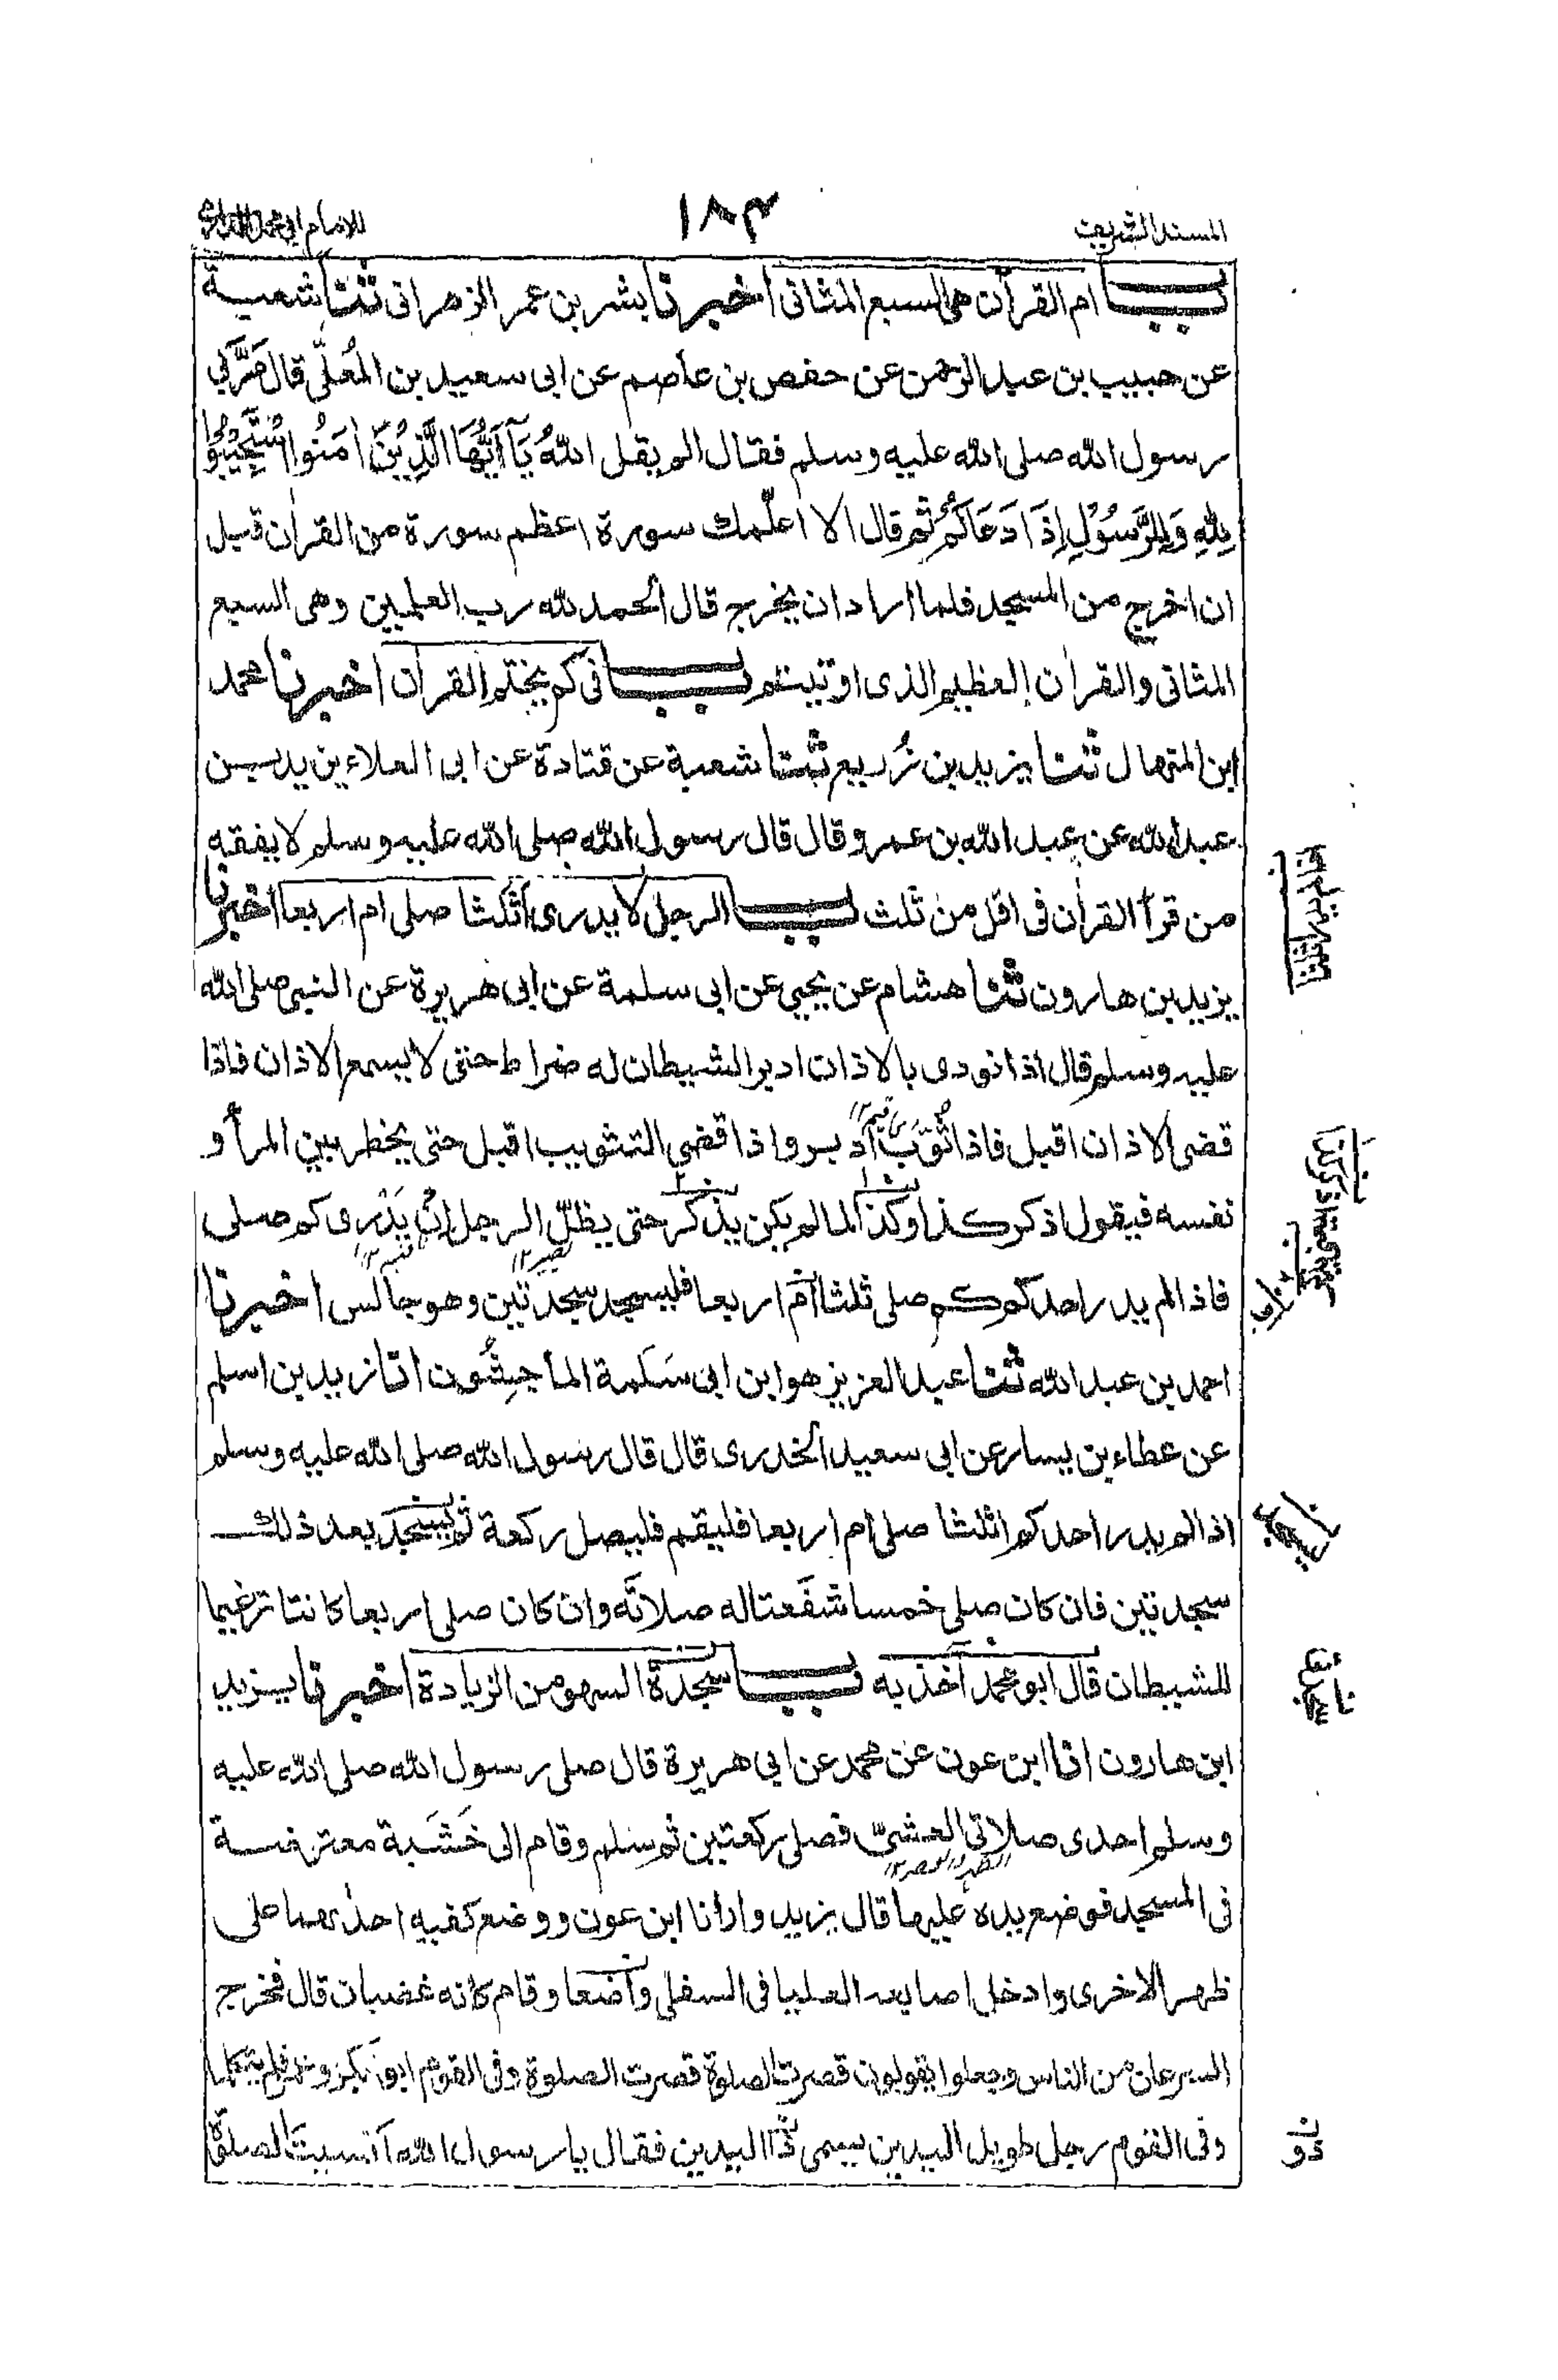 المسند الشريف
١٨٣
للامام ابي محمد الدارمي
باب ام القرآن هى السبع المثانى اخبرنا بشر بن عمر الزهرانى ثنا شعبة
عن حبيب بن عبد الرحمن عن حفص بن عاصم عن ابى سعيد بن المُعلّٰى قال مَرَّ بي
رسول الله صلى الله عليه وسلم فقال الم يقل اللهُ يَآ اَيُّهَا الَّذِيْنَ اٰمَنُوا اسْتَجِيْبُوْا
لِلّٰهِ وَلِلرَّسُوْلِ اِذَا دَعَاكُمْ ثم قال الا اعلّمك سورة اعظم سورة من القرآن قبل
ان اخرج من المسجد فلما اراد ان يخرج قال الحمد لله رب العلمين وهى السبع
المثانى والقرآن العظيم الذى اوتيتم باب فى كم يختم القرآن اخبرنا محمد
ابن المنهال ثنا يزيد بن زُريع ثنا شعبة عن قتادة عن ابى العلاء يزيد بن
عبد الله عن عبد الله بن عمرو قال قال رسول الله صلى الله عليه وسلم لا يفقه
من قرأ القرآن فى اقل من ثلث باب الرجل لا يدرى أثلثا صلى ام اربعا اخبرنا
يزيد بن هارون ثنا هشام عن يحيى عن ابى سلمة عن ابى هريرة عن النبى صلى الله
عليه وسلم قال اذا نودى بالاذان ادبر الشيطان له ضراط حتى لا يسمع الاذان فاذا
قضى الاذان اقبل فاذا ثُوّبَ ادبر واذا قضى التثويب اقبل حتى يخطر بين المرأ و
نفسه فيقول اذكر كذا وكذا لما لم يكن يذكر حتى يظلّ الرجل اِنْ يَدْرى كم صلى
فاذا لم يدر احدكم كم صلى ثلثا ام اربعا فليسجد سجدتين وهو جالس اخبرنا
احمد بن عبد الله ثنا عبد العزيز هو ابن ابى سَلَمة الماجِشُون انا زيد بن اسلم
عن عطاء بن يسار عن ابى سعيد الخدرى قال قال رسول الله صلى الله عليه وسلم
اذا لم يدر احدكم اثلثا صلى ام اربعا فليقم فليصل ركعة ثم يسجد بعد ذلك
سجدتين فان كان صلى خمسا شفَعتا له صلاتَه وان كان صلى اربعا كانتا ترغيما
للشيطان قال ابو محمد آخذ به باب سجدة السهو من الزيادة اخبرنا يزيد
ابن هارون انا ابن عون عن محمد عن ابي هريرة قال صلى رسول الله صلى الله عليه
وسلم احدى صلاتى العشىّ فصلى ركعتين ثم سلم وقام الى خَشَبة معترضة
فى المسجد فوضع يده عليها قال يزيد وارانا ابن عون ووضع كفيه احدٰىهما على
ظهر الاخرى وادخل اصابعه العليا فى السفلى واضعا وقام كانه غضبان قال فخرج
السرعان من الناس وجعلوا يقولون قصرت الصلوة قصرت الصلوة وفى القوم ابو بكر وعمر فلم يتكلما
وفى القوم رجل طويل اليدين يسمى ذا اليدين فقال يا رسول الله أنسيت الصلوة